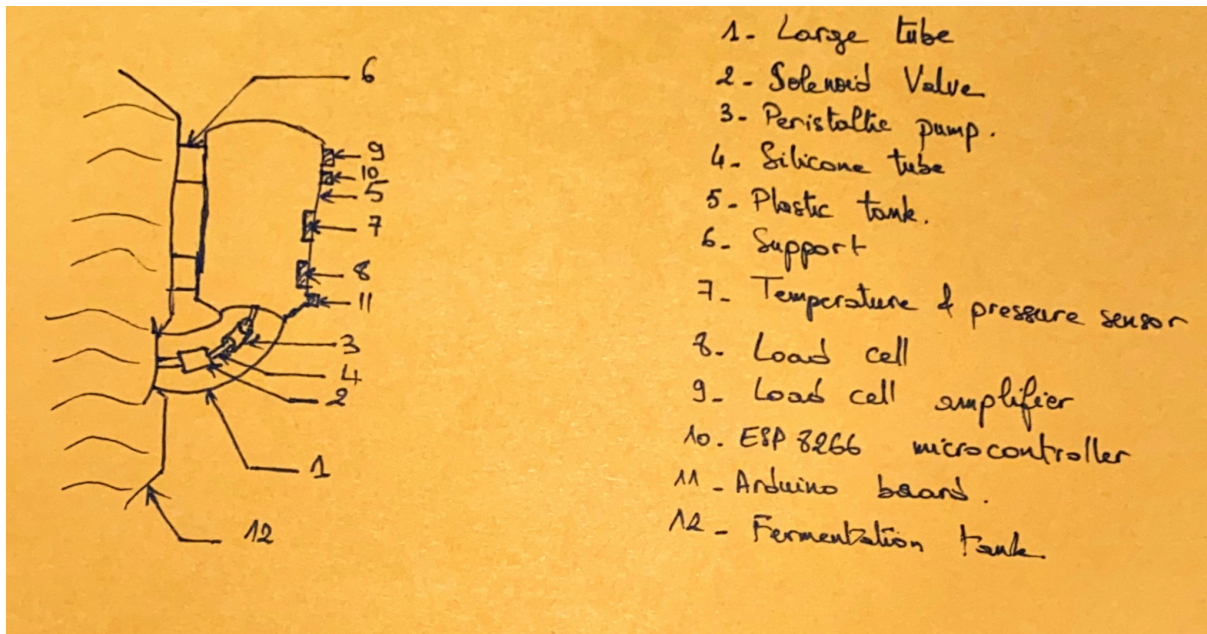 6
9
10
5
7
8
11
3
4
2
1
12
1- Large tube
2- Solenoid Valve
3- Peristaltic pump.
4- Silicone tube
5- Plastic tank.
6- Support
7- Temperature & pressure sensor
8- Load cell
9- Load cell amplifier
10. ESP 8266 microcontroller
11- Arduino board.
12- Fermentation tank.